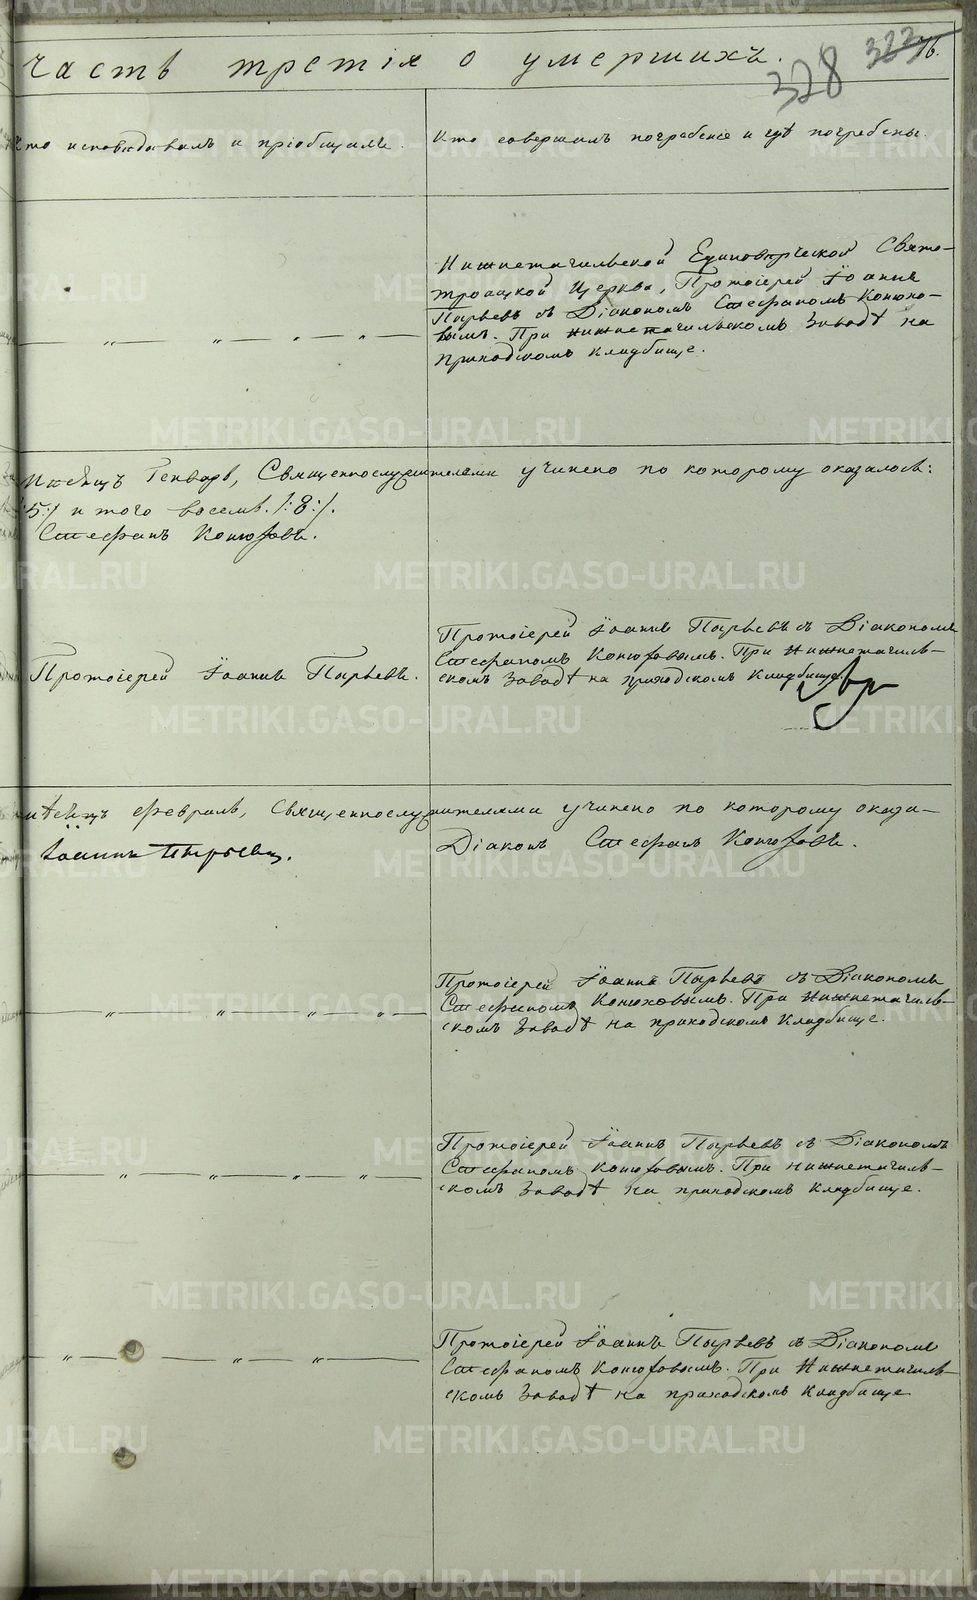 часть третія о умершихъ.
328 323 76.
Кто исповѣдывалъ и пріобщалъ.
Кто совершилъ погребеніе и гдѣ погребены.
Нижнетагильской Единовѣрческой Свято-
троицкой Церкви, Протоіерей Іоаннъ
Пырьевъ съ Діакономъ Стефаномъ Конюхо-
вымъ. При Нижнетагильскомъ Заводѣ на
приходскомъ кладбище.
Мѣсяцъ Генварь, Священнослужителями учинено по которому оказалось:
5:/ итого восемь. /:8:/.
Стефанъ Конюховъ.
Протоіерей Іоаннъ Пырьевъ.
Протоіерей Іоаннъ Пырьевъ съ Діакономъ
Стефаномъ Конюховымъ. При Нижнетагиль-
скомъ Заводѣ на приходскомъ Кладбище.
мѣсяцъ февраль, Священнослужителями учинено по которому оказа-
Іоаннъ Пырьевъ.
Діаконъ Стефанъ Конюховъ.
Протоіерей Іоаннъ Пырьевъ съ Діакономъ
Стефаномъ Конюховымъ. При Нижнетагиль-
скомъ Заводѣ на приходскомъ Кладбище.
Протоіерей Іоаннъ Пырьевъ съ Діакономъ
Стефаномъ Конюховымъ. При Нижнетагиль-
скомъ Заводѣ на приходскомъ Кладбище.
Протоіерей Іоаннъ Пырьевъ съ Діакономъ
Стефаномъ Конюховымъ. При Нижнетагиль-
скомъ Заводѣ на приходскомъ Кладбище
METRIKI.GASO-URAL.RU